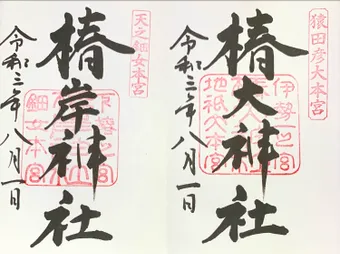 猿田彦大本宮
椿大神社
伊勢一之宮
地祇大本宮
令和三年八月一日
天之鈿女本宮
椿岸神社
鈿女本宮
令和三年八月一日